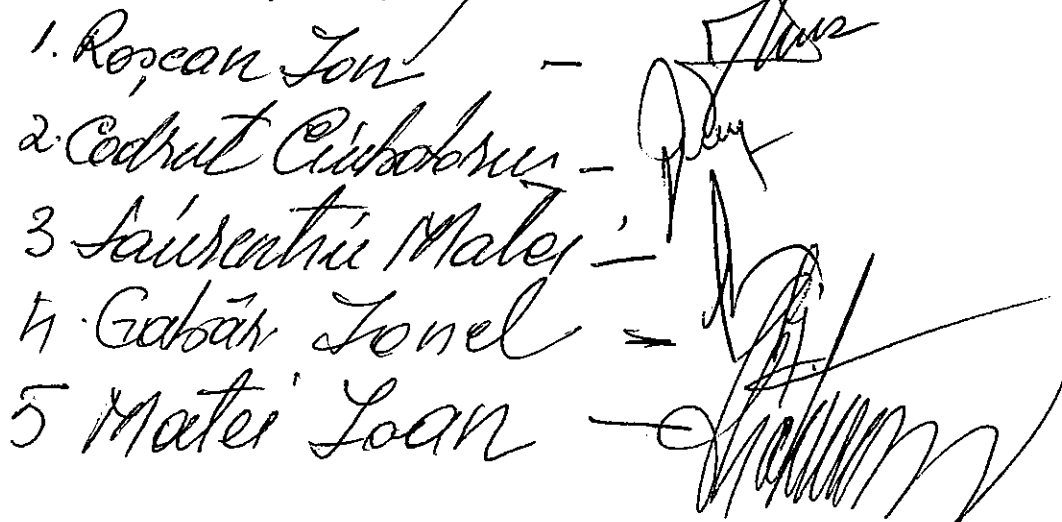 1. Roșcan Ion –
2. Codruț Ciubotaru –
3 Laurențiu Matei –
4. Gabăr Ionel –
5 Matei Ioan –